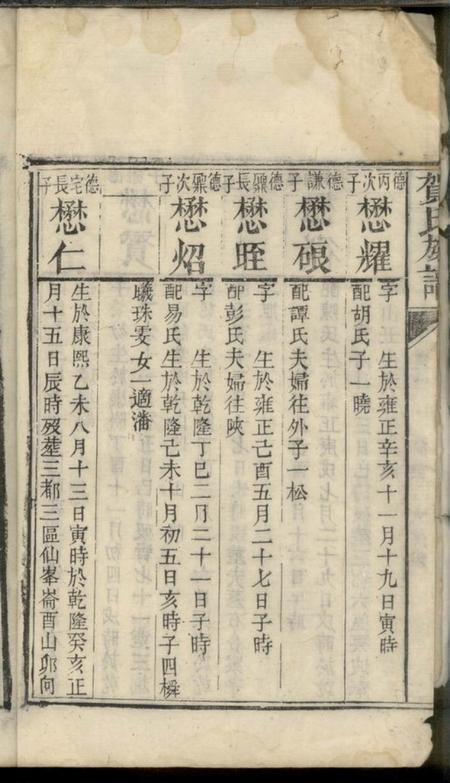 賀氏族譜
德丙次子
懋耀
字山玉 生於雍正辛亥十一月十九日寅時
配胡氏子一曉
德謙子
懋硍
配譚氏夫婦往外子一松
德鼏長子
懋𰥛
字 生於雍正己酉五月二十七日子時
配彭氏夫婦往陝
德鼏次子
懋炤
字 生於乾隆丁巳二月二十一日子時
配易氏生於乾隆己未十月初五日亥時子四橓
曦珠雯女一適潘
德宅長子
懋仁
生於康熙乙未八月十三日寅時於乾隆癸亥正
月十五日辰時歿塟三都三區仙峯崙酉山卯向